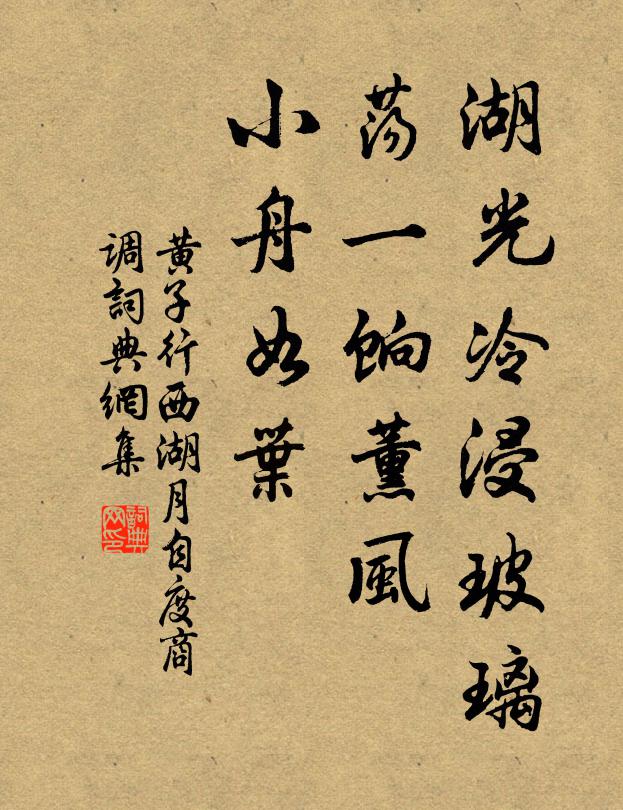 湖光冷浸玻璃
荡一饷薰風
小舟如葉
黄子行西湖月自度商
调詞典網集
詞典网印